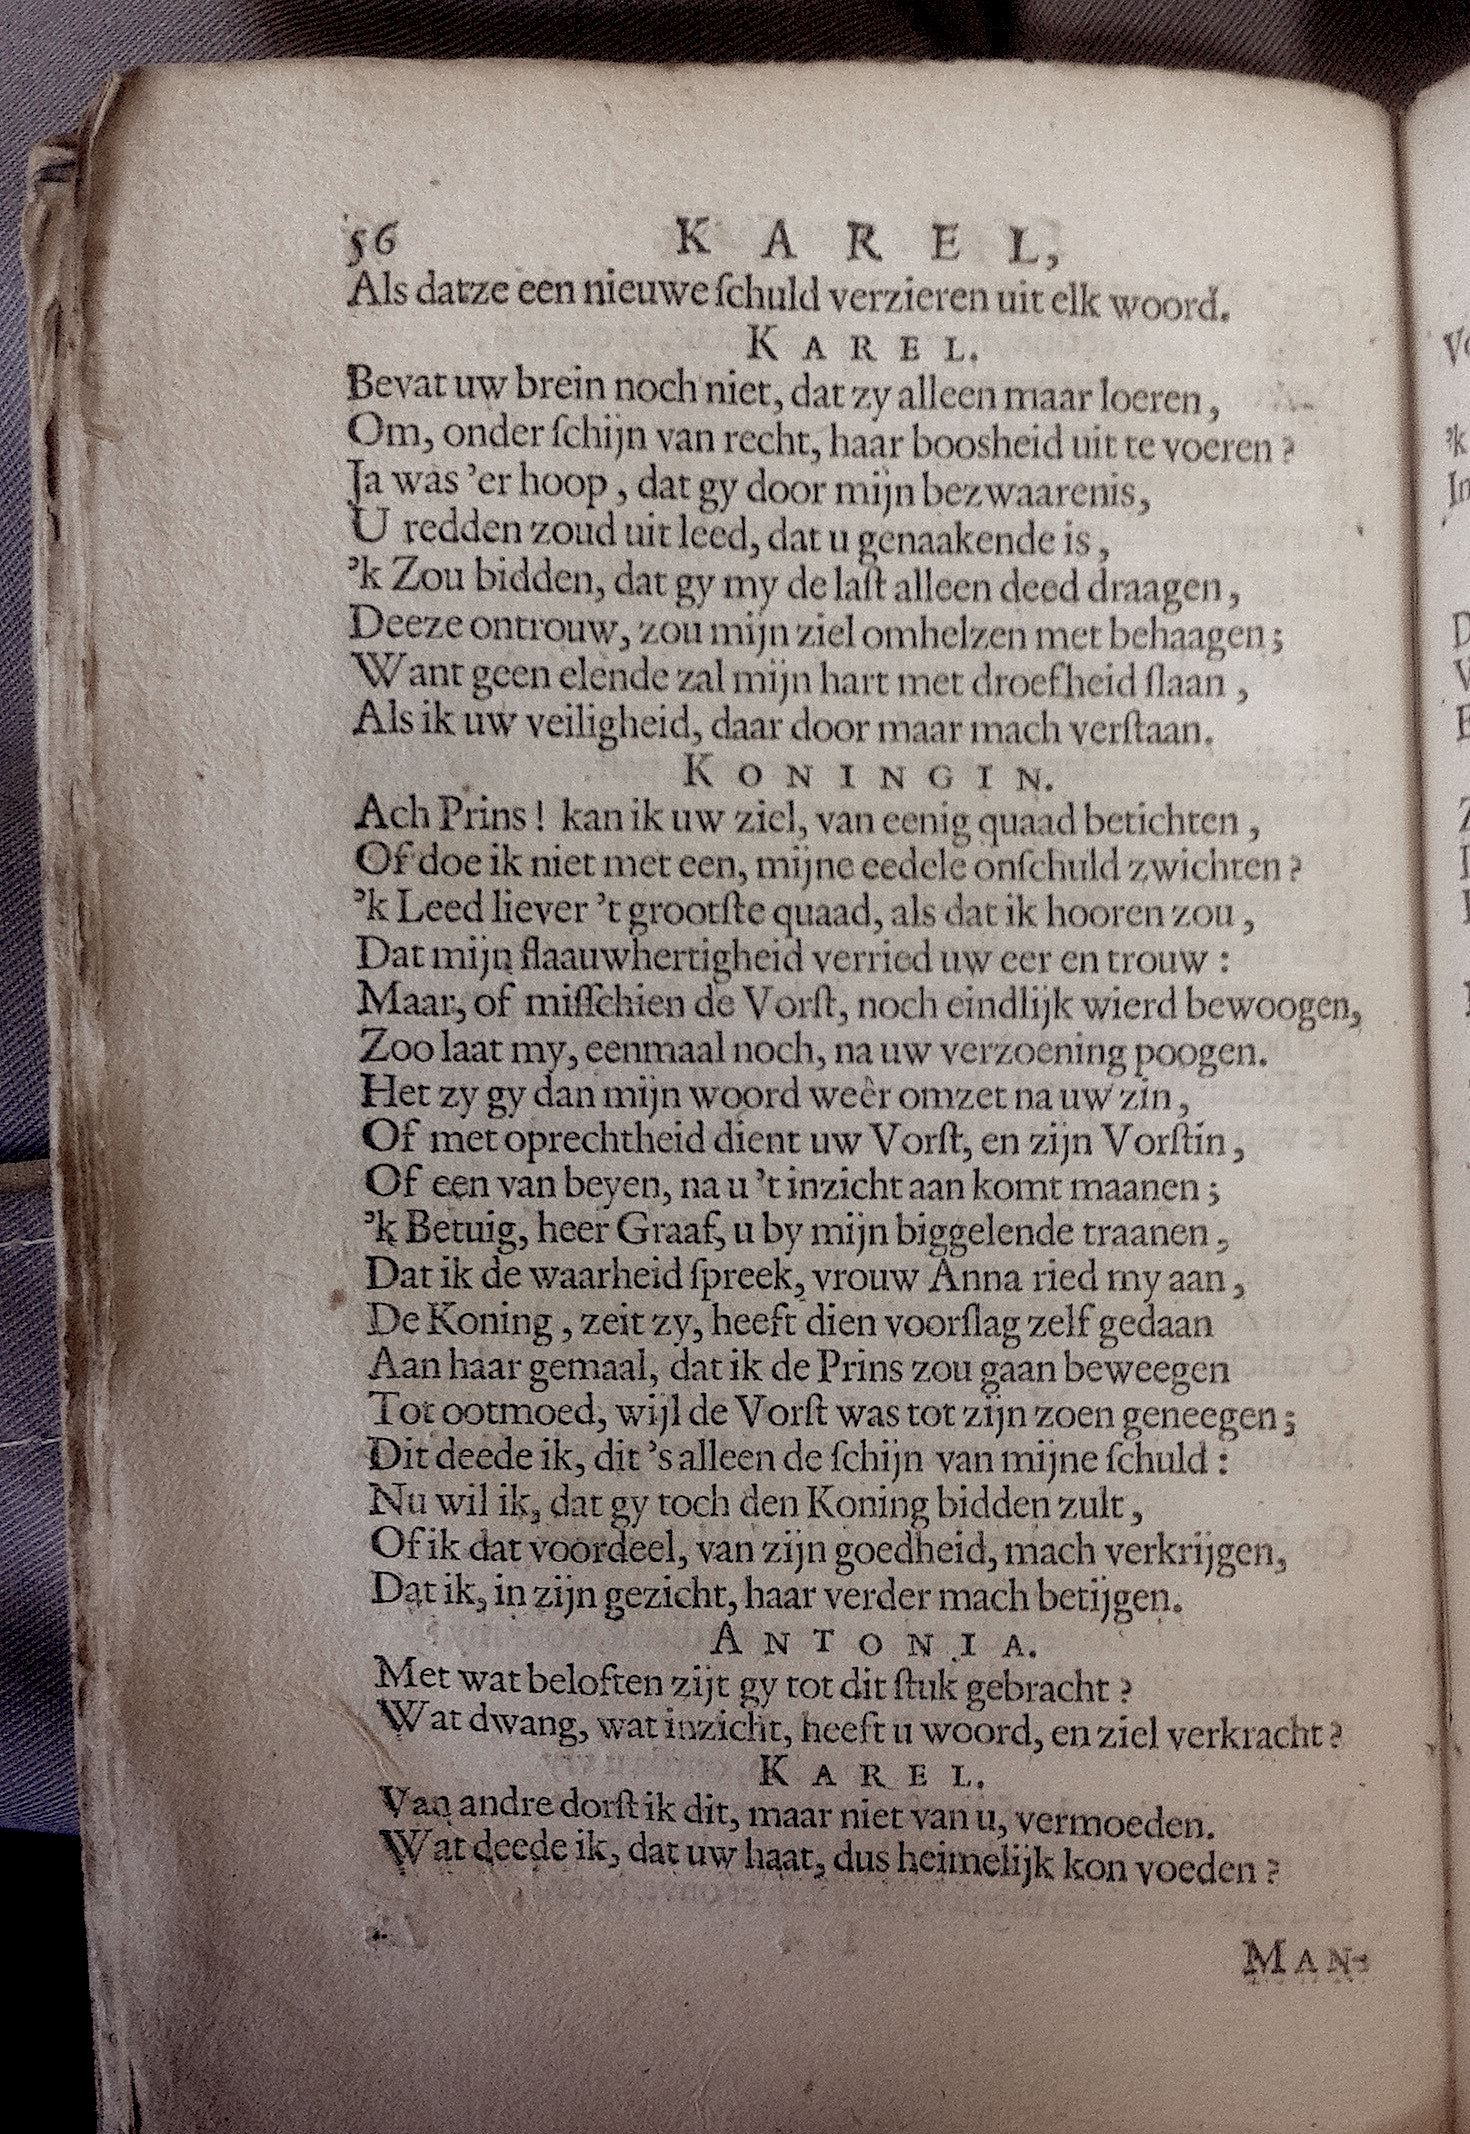 56 KAREL,
Als datze een nieuwe ſchuld verzieren uit elk woord.
KAREL.
Bevat uw brein noch niet, dat zy alleen maar loeren,
Om, onder ſchijn van recht, haar boosheid uit te voeren?
Ja was 'er hoop, dat gy door mijn bezwaarenis,
U redden zoud uit leed, dat u genaakende is,
'k Zou bidden, dat gy my de laſt alleen deed draagen,
Deeze ontrouw, zou mijn ziel omhelzen met behaagen;
Want geen elende zal mijn hart met droefheid ſlaan,
Als ik uw veiligheid, daar door maar mach verſtaan.
KONINGIN.
Ach Prins! kan ik uw ziel, van eenig quaad betichten,
Of doe ik niet met een, mijne eedele onſchuld zwichten?
'k Leed liever 't grootſte quaad, als dat ik hooren zou,
Dat mijn flaauwhertigheid verried uw eer en trouw:
Maar, of miſſchien de Vorſt, noch eindlijk wierd bewoogen,
Zoo laat my, eenmaal noch, na uw verzoening poogen.
Het zy gy dan mijn woord weêr omzet na uw zin,
Of met oprechtheid dient uw Vorſt, en zijn Vorſtin,
Of een van beyen, na u 't inzicht aan komt maanen;
'k Betuig, heer Graaf, u by mijn biggelende traanen,
Dat ik de waarheid ſpreek, vrouw Anna ried my aan,
De Koning, zeit zy, heeft dien voorſlag zelf gedaan
Aan haar gemaal, dat ik de Prins zou gaan beweegen
Tot ootmoed, wijl de Vorſt was tot zijn zoen geneegen;
Dit deede ik, dit 's alleen de ſchijn van mijne ſchuld:
Nu wil ik, dat gy toch den Koning bidden zult,
Of ik dat voordeel, van zijn goedheid, mach verkrijgen,
Dat ik, in zijn gezicht, haar verder mach betijgen.
ANTONIA.
Met wat beloften zijt gy tot dit ſtuk gebracht?
Wat dwang, wat inzicht, heeft u woord, en ziel verkracht?
KAREL.
Van andre dorſt ik dit, maar niet van u, vermoeden.
Wat deede ik, dat uw haat, dus heimelijk kon voeden?
MAN-